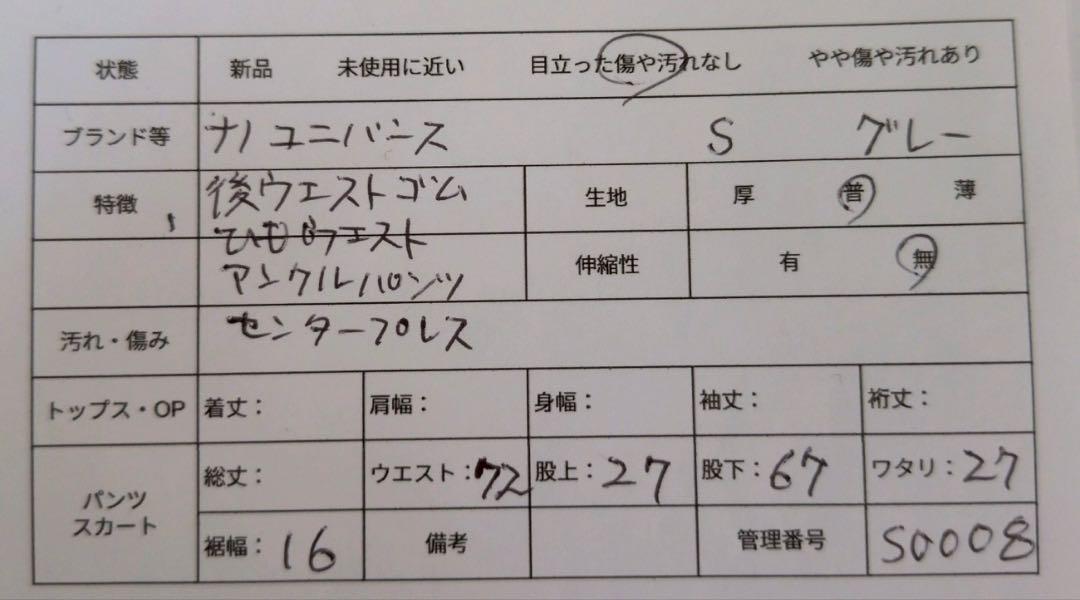 状態 新品 未使用に近い 目立った傷や汚れなし やや傷や汚れあり
ブランド等 ナノユニバース S グレー
特徴 後ウエストゴム 生地 厚 普 薄
ひもウエスト
アンクルパンツ 伸縮性 有 無
汚れ・傷み センタープレス
トップス・OP 着丈: 肩幅: 身幅: 袖丈: 裄丈:
パンツ
スカート
総丈: ウエスト:72 股上:27 股下:67 ワタリ:27
裾幅:16 備考 管理番号 S0008